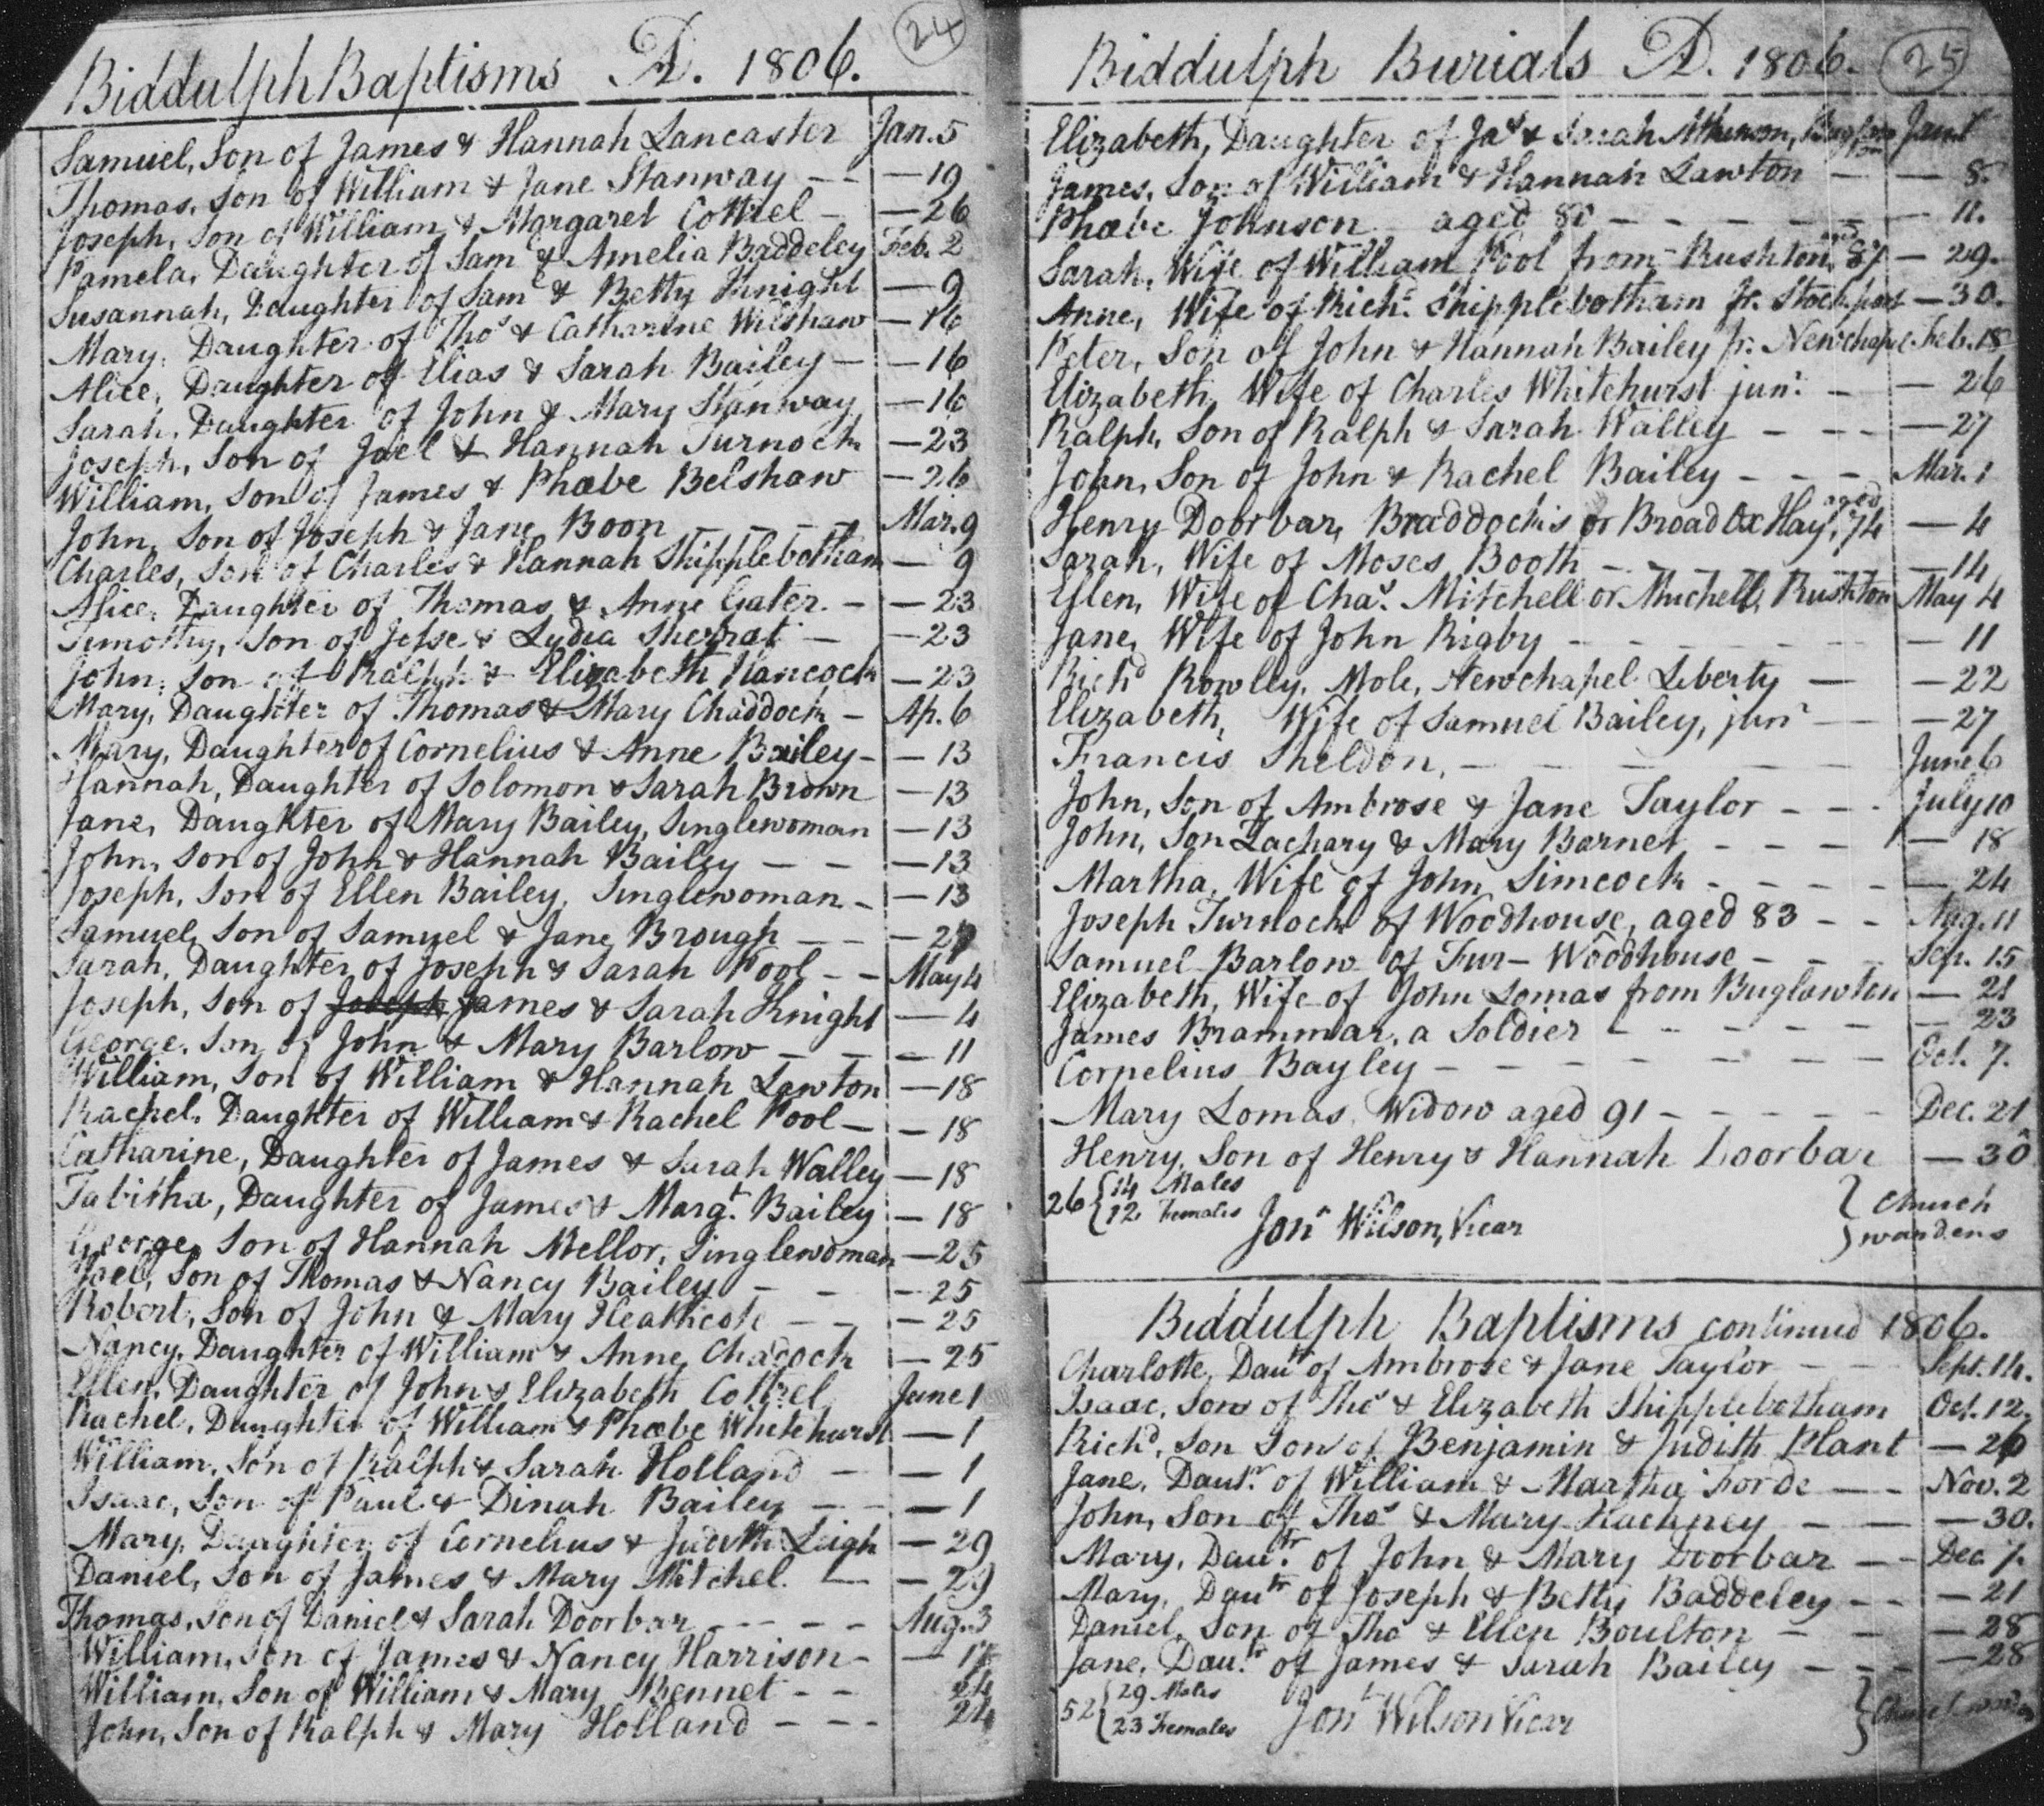 24
Biddulph Baptisms A.D. 1806.
Samuel, Son of James & Hannah Lancaster Jan. 5
Thomas, Son of William & Jane Stanway - - — 19
Joseph, Son of William & Margaret Cottrel - — 26
Pamela, Daughter of Saml & Amelia Baddeley Feb. 2
Susannah, Daughter of Saml & Betty Knight — 9
Mary, Daughter of Thos & Catharine Wilshaw — 16
Alice, Daughter of Elias & Sarah Bailey — — 16
Sarah, Daughter of John & Mary Stanway — 16
Joseph, Son of Joel & Hannah Turnock — 23
William, Son of James & Phœbe Belshaw — 26
John, Son of Joseph & Jane Boon - - - - Mar. 9
Charles, Son of Charles & Hannah Shipplebotham — 9
Alice, Daughter of Thomas & Anne Gater. - — 23
Timothy, Son of Jesse & Lydia Sherrat — — 23
John, Son of Ralph & Elizabeth Hancock — 23
Mary, Daughter of Thomas & Mary Chaddock - Ap. 6
Mary, Daughter of Cornelius & Anne Bailey - — 13
Hannah, Daughter of Solomon & Sarah Brown — 13
Jane, Daughter of Mary Bailey, Singlewoman — 13
John, Son of John & Hannah Bailey — — — 13
Joseph, Son of Ellen Bailey, Singlewoman - — 13
Samuel, Son of Samuel & Jane Brough — — - 27
Sarah, Daughter of Joseph & Sarah Pool - - May 4
Joseph, Son of Joseph James & Sarah Knight — 4
George, Son of John & Mary Barlow — — — 11
William, Son of William & Hannah Lawton — 18
Rachel, Daughter of William & Rachel Pool — — 18
Catharine, Daughter of James & Sarah Walley — 18
Tabitha, Daughter of James & Margt. Bailey — 18
George, Son of Hannah Mellor, Singlewoman — 25
Joel, Son of Thomas & Nancy Bailey - - - 25
Robert, Son of John & Mary Heathcote — - — 25
Nancy, Daughter of William & Anne Chadock — 25
Ellen, Daughter of John & Elizabeth Cottrel June 1
Rachel, Daughter of William & Phœbe Whitehurst — 1
William, Son of Ralph & Sarah Holland — — 1
Isaac, Son of Paul & Dinah Bailey — - — 1
Mary, Daughter of Cornelius & Judith Leigh — 29
Daniel, Son of James & Mary Mitchel. — — 29
Thomas, Son of Daniel & Sarah Doorbar - - - - Aug. 3
William, Son of James & Nancy Harrison - — 17
William, Son of William & Mary Bennet - - 24
John, Son of Ralph & Mary Holland - - - 24
25
Biddulph Burials A.D. 1806.
Elizabeth, Daughter of Jas & Sarah Jan.
James, Son of William & Hannah Lawton — — 8.
Phœbe Johnson aged 80 - - - - - — 11.
Sarah, Wife of William Pool from Rushton, aged 87 — 29.
Anne, Wife of Richd. Shipplebotham fr. Stockport — 30.
Peter, Son of John & Hannah Bailey fr. Newchapel Feb. 18
Elizabeth, Wife of Charles Whitehurst junr. - — 26
Ralph, Son of Ralph & Sarah Walley - - - — 27
John, Son of John & Rachel Bailey - - - Mar. 1
Henry Doorbar, Braddock's or Broad Ox Hay, aged 74 — 4
Sarah, Wife of Moses Booth - - - - — 14
Ellen, Wife of Chas. Mitchell or Muchell, Rushton May 4
Jane, Wife of John Rigby - - - - - — 11
Richd Rowley, Mole, Newchapel Liberty — — 22
Elizabeth, Wife of Samuel Bailey, junr — — 27
Francis Sheldon, - - - - - June 6
John, Son of Ambrose & Jane Taylor - - - July 10
John, Son Zachary & Mary Barnet - - - — 18
Martha, Wife of John Simcock - - - - — 24
Joseph Turnock of Woodhouse, aged 83 - - Aug. 11
Samuel Barlow of Fur- Woodhouse - - - Sep. 15
Elizabeth, Wife of John Lomas from Buglawton — 21
James Brammar, a Soldier - - - - - — 23
Cornelius Bayley - - - - - - Oct. 7.
Mary Lomas, Widow aged 91 - - - - - Dec. 21
Henry, Son of Henry & Hannah Doorbar — 30
26 { 14 Males
12 Females
Jonn Wilson, Vicar
} Church
wardens
Biddulph Baptisms continued 1806.
Charlotte, Daur of Ambrose & Jane Taylor - - Sept. 14.
Isaac, Son of Thos & Elizabeth Shipplebotham Oct. 12.
Richd, Son Son of Benjamin & Judith Plant — 26
Jane, Dautr. of William & Martha Forde — - Nov. 2
John, Son of Thos & Mary Hackney - — — 30.
Mary, Dautr. of John & Mary Doorbar — - Dec. 7.
Mary, Dautr of Joseph & Betty Baddeley - - — 21
Daniel, Son of Thos & Ellen Boulton - - — 28
Jane, Dautr. of James & Sarah Bailey - - - — 28
52 { 29 Males
23 Females
Jonn Wilson Vicar